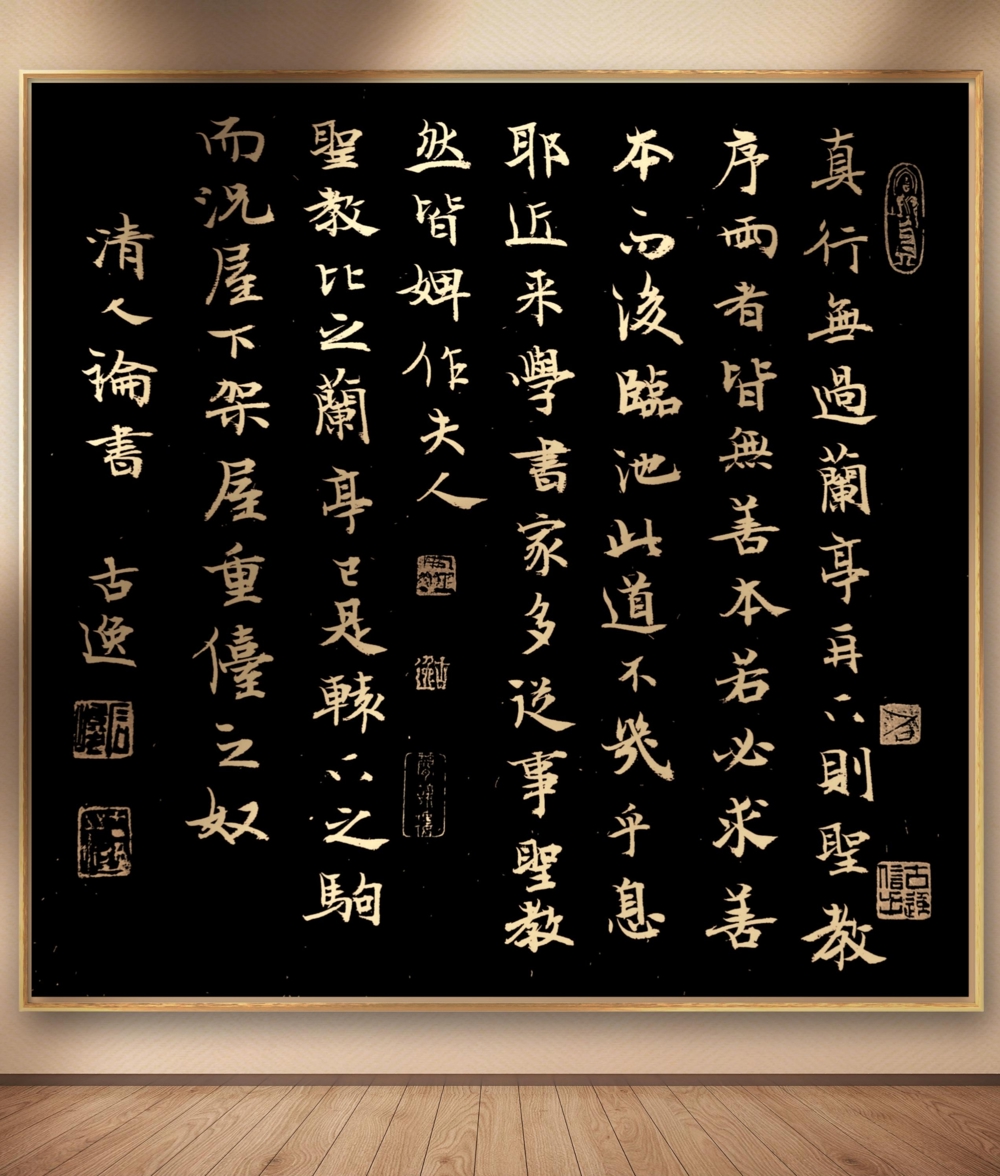 真行無過蘭亭再下則聖教
序兩者皆無善本若必求善
本而後臨池此道不幾乎息
耶近来學書家多從事聖教
然皆婢作夫人
聖教比之蘭亭已是轅下之駒
而況屋下架屋重儓之奴
清人論書
古逸